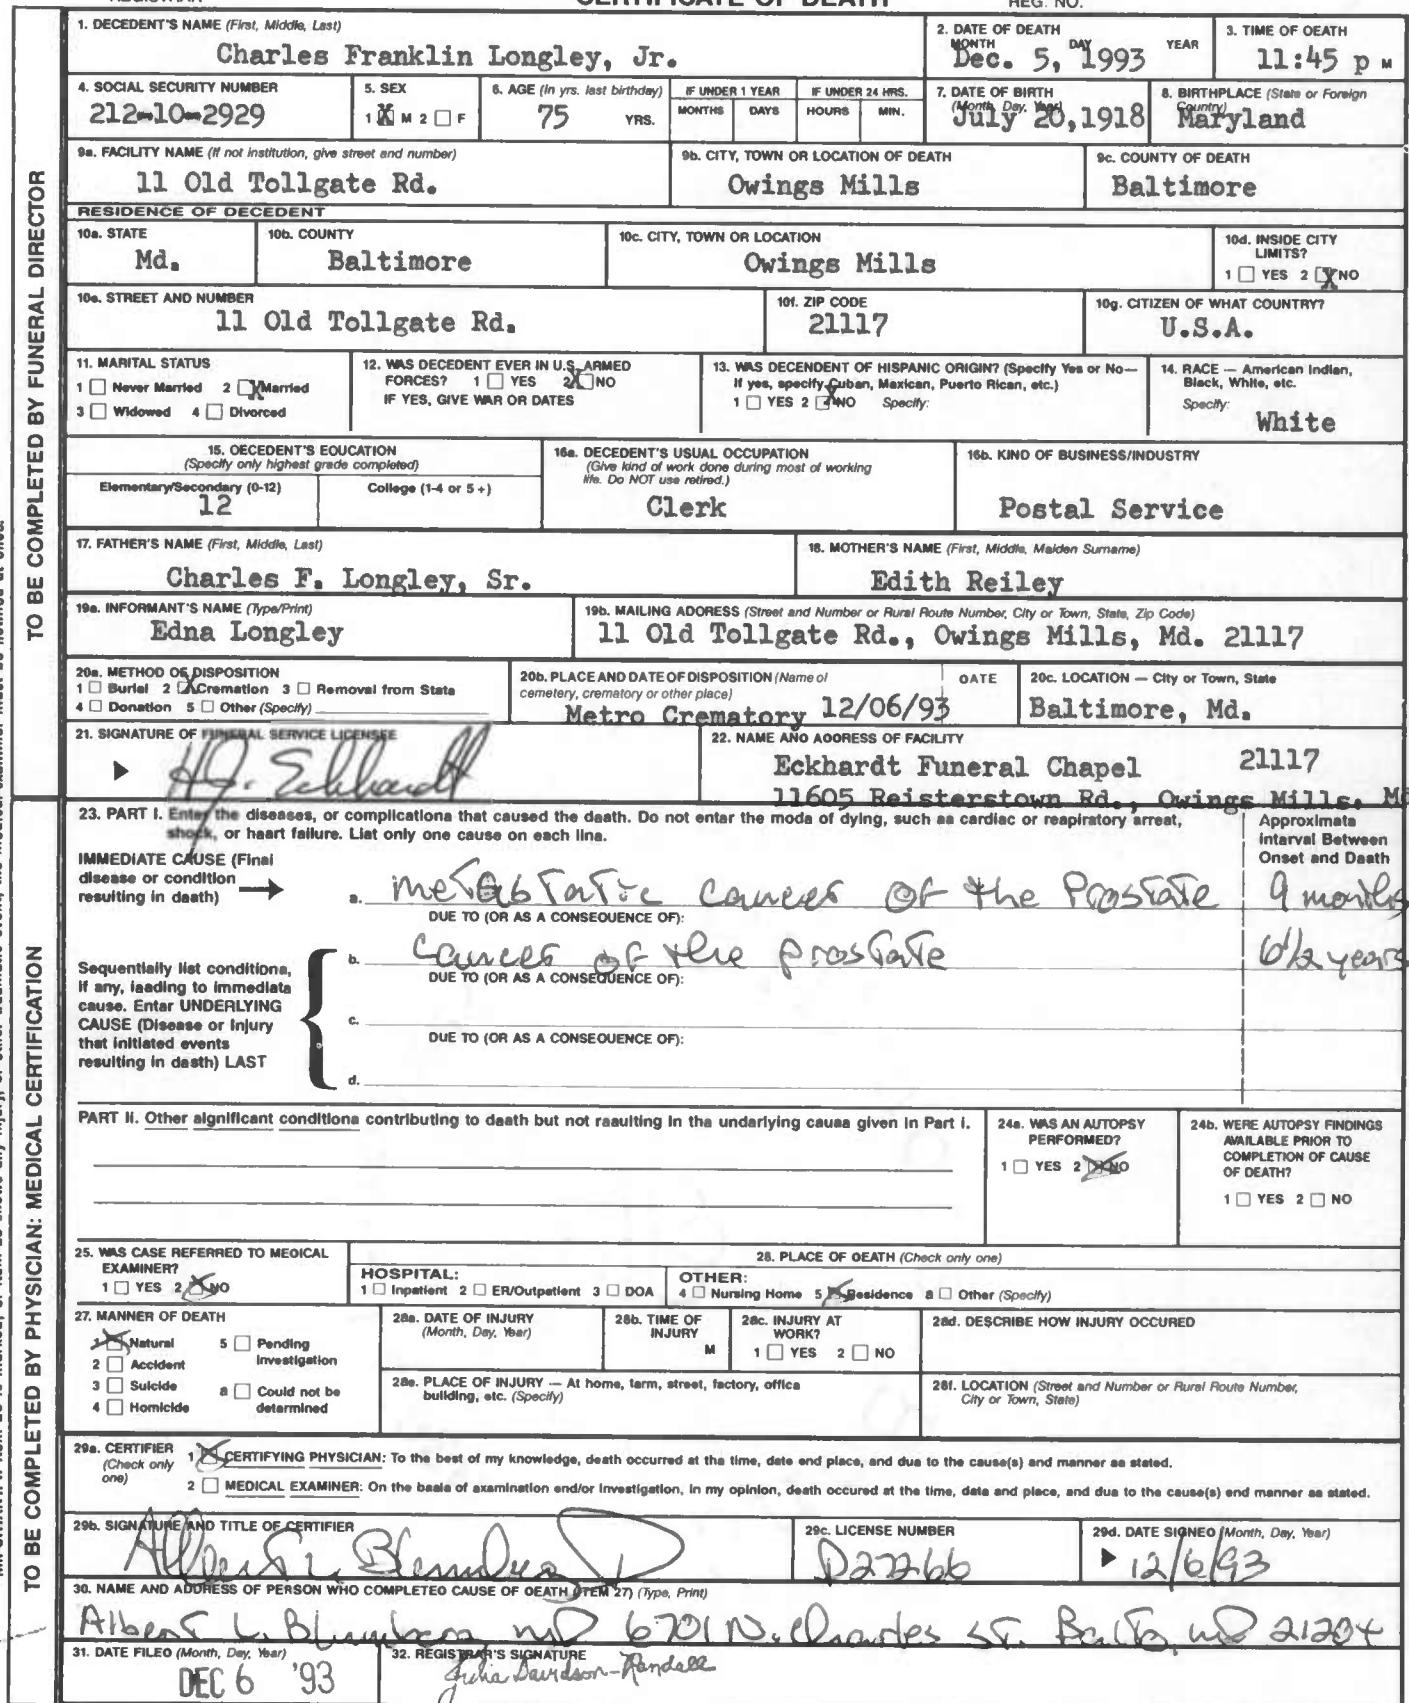 CERTIFICATE OF DEATH
REG. NO.
1. DECEDENT'S NAME (First, Middle, Last)
Charles Franklin Longley, Jr.
2. DATE OF DEATH
MONTH DAY YEAR
Dec. 5, 1993
3. TIME OF DEATH
11:45 p M
4. SOCIAL SECURITY NUMBER
212-10-2929
5. SEX
1 X M 2 □ F
6. AGE (In yrs. last birthday)
75 YRS.
IF UNDER 1 YEAR
MONTHS DAYS
IF UNDER 24 HRS.
HOURS MIN.
7. DATE OF BIRTH
(Month, Day, Year)
July 20,1918
8. BIRTHPLACE (State or Foreign
Country)
Maryland
9a. FACILITY NAME (If not institution, give street and number)
11 Old Tollgate Rd.
9b. CITY, TOWN OR LOCATION OF DEATH
Owings Mills
9c. COUNTY OF DEATH
Baltimore
RESIDENCE OF DECEDENT
10a. STATE
Md.
10b. COUNTY
Baltimore
10c. CITY, TOWN OR LOCATION
Owings Mills
10d. INSIDE CITY
LIMITS?
1 □ YES 2 X NO
10e. STREET AND NUMBER
11 Old Tollgate Rd.
10f. ZIP CODE
21117
10g. CITIZEN OF WHAT COUNTRY?
U.S.A.
11. MARITAL STATUS
1 □ Never Married 2 X Married
3 □ Widowed 4 □ Divorced
12. WAS DECEDENT EVER IN U.S. ARMED
FORCES? 1 □ YES 2 X NO
IF YES, GIVE WAR OR DATES
13. WAS DECENDENT OF HISPANIC ORIGIN? (Specify Yes or No—
If yes, specify Cuban, Maxican, Puerto Rican, etc.)
1 □ YES 2 X NO Specify:
14. RACE — American Indian,
Black, White, etc.
Specify:
White
15. DECEDENT'S EDUCATION
(Specify only highest grade completed)
Elementary/Secondary (0-12)
12
College (1-4 or 5 +)
16a. DECEDENT'S USUAL OCCUPATION
(Give kind of work done during most of working
life. Do NOT use retired.)
Clerk
16b. KIND OF BUSINESS/INDUSTRY
Postal Service
17. FATHER'S NAME (First, Middle, Last)
Charles F. Longley, Sr.
18. MOTHER'S NAME (First, Middle, Maiden Surname)
Edith Reiley
19a. INFORMANT'S NAME (Type/Print)
Edna Longley
19b. MAILING ADDRESS (Street and Number or Rural Route Number, City or Town, State, Zip Code)
11 Old Tollgate Rd., Owings Mills, Md. 21117
20a. METHOD OF DISPOSITION
1 □ Burial 2 X Cremation 3 □ Removal from State
4 □ Donation 5 □ Other (Specify)
20b. PLACE AND DATE OF DISPOSITION (Name of
cemetery, crematory or other place)
DATE
Metro Crematory 12/06/93
20c. LOCATION — City or Town, State
Baltimore, Md.
21. SIGNATURE OF FUNERAL SERVICE LICENSEE
H.J. Eckhardt
22. NAME AND ADDRESS OF FACILITY
Eckhardt Funeral Chapel 21117
11605 Reisterstown Rd., Owings Mills, Md
TO BE COMPLETED BY FUNERAL DIRECTOR
23. PART I. Enter the diseases, or complications that caused the death. Do not enter the mode of dying, such as cardiac or respiratory arrest,
shock, or heart failure. List only one cause on each line.
Approximate
Interval Between
Onset and Death
IMMEDIATE CAUSE (Final
disease or condition
resulting in death)
a. metastatic cancer of the Prostate 9 months
DUE TO (OR AS A CONSEQUENCE OF):
b. Cancer of the prostate 6 1/2 years
DUE TO (OR AS A CONSEQUENCE OF):
Sequentially list conditions,
if any, leading to immediate
cause. Enter UNDERLYING
CAUSE (Disease or Injury
that initiated events
resulting in death) LAST
c.
DUE TO (OR AS A CONSEQUENCE OF):
d.
PART II. Other significant conditions contributing to death but not resulting in the underlying cause given in Part I.
24a. WAS AN AUTOPSY
PERFORMED?
1 □ YES 2 X NO
24b. WERE AUTOPSY FINDINGS
AVAILABLE PRIOR TO
COMPLETION OF CAUSE
OF DEATH?
1 □ YES 2 □ NO
25. WAS CASE REFERRED TO MEDICAL
EXAMINER?
1 □ YES 2 X NO
26. PLACE OF DEATH (Check only one)
HOSPITAL:
1 □ Inpatient 2 □ ER/Outpatient 3 □ DOA
OTHER:
4 □ Nursing Home 5 X Residence 6 □ Other (Specify)
27. MANNER OF DEATH
1 X Natural 5 □ Pending
Investigation
2 □ Accident
3 □ Suicide 6 □ Could not be
determined
4 □ Homicide
28a. DATE OF INJURY
(Month, Day, Year)
28b. TIME OF
INJURY
M
28c. INJURY AT
WORK?
1 □ YES 2 □ NO
28d. DESCRIBE HOW INJURY OCCURED
28e. PLACE OF INJURY — At home, farm, street, factory, office
building, etc. (Specify)
28f. LOCATION (Street and Number or Rural Route Number,
City or Town, State)
29a. CERTIFIER
(Check only
one)
1 X CERTIFYING PHYSICIAN: To the best of my knowledge, death occurred at the time, date and place, and due to the cause(s) and manner as stated.
2 □ MEDICAL EXAMINER: On the basis of examination and/or investigation, in my opinion, death occured at the time, date and place, and due to the cause(s) and manner as stated.
29b. SIGNATURE AND TITLE OF CERTIFIER
29c. LICENSE NUMBER
D27266
29d. DATE SIGNED (Month, Day, Year)
12/6/93
30. NAME AND ADDRESS OF PERSON WHO COMPLETED CAUSE OF DEATH (ITEM 27) (Type, Print)
Albert L. Blumberg, MD 6701 N. Charles St. Balto, MD 21204
31. DATE FILED (Month, Day, Year)
DEC 6 '93
32. REGISTRAR'S SIGNATURE
Julia Davidson-Randall
TO BE COMPLETED BY PHYSICIAN: MEDICAL CERTIFICATION